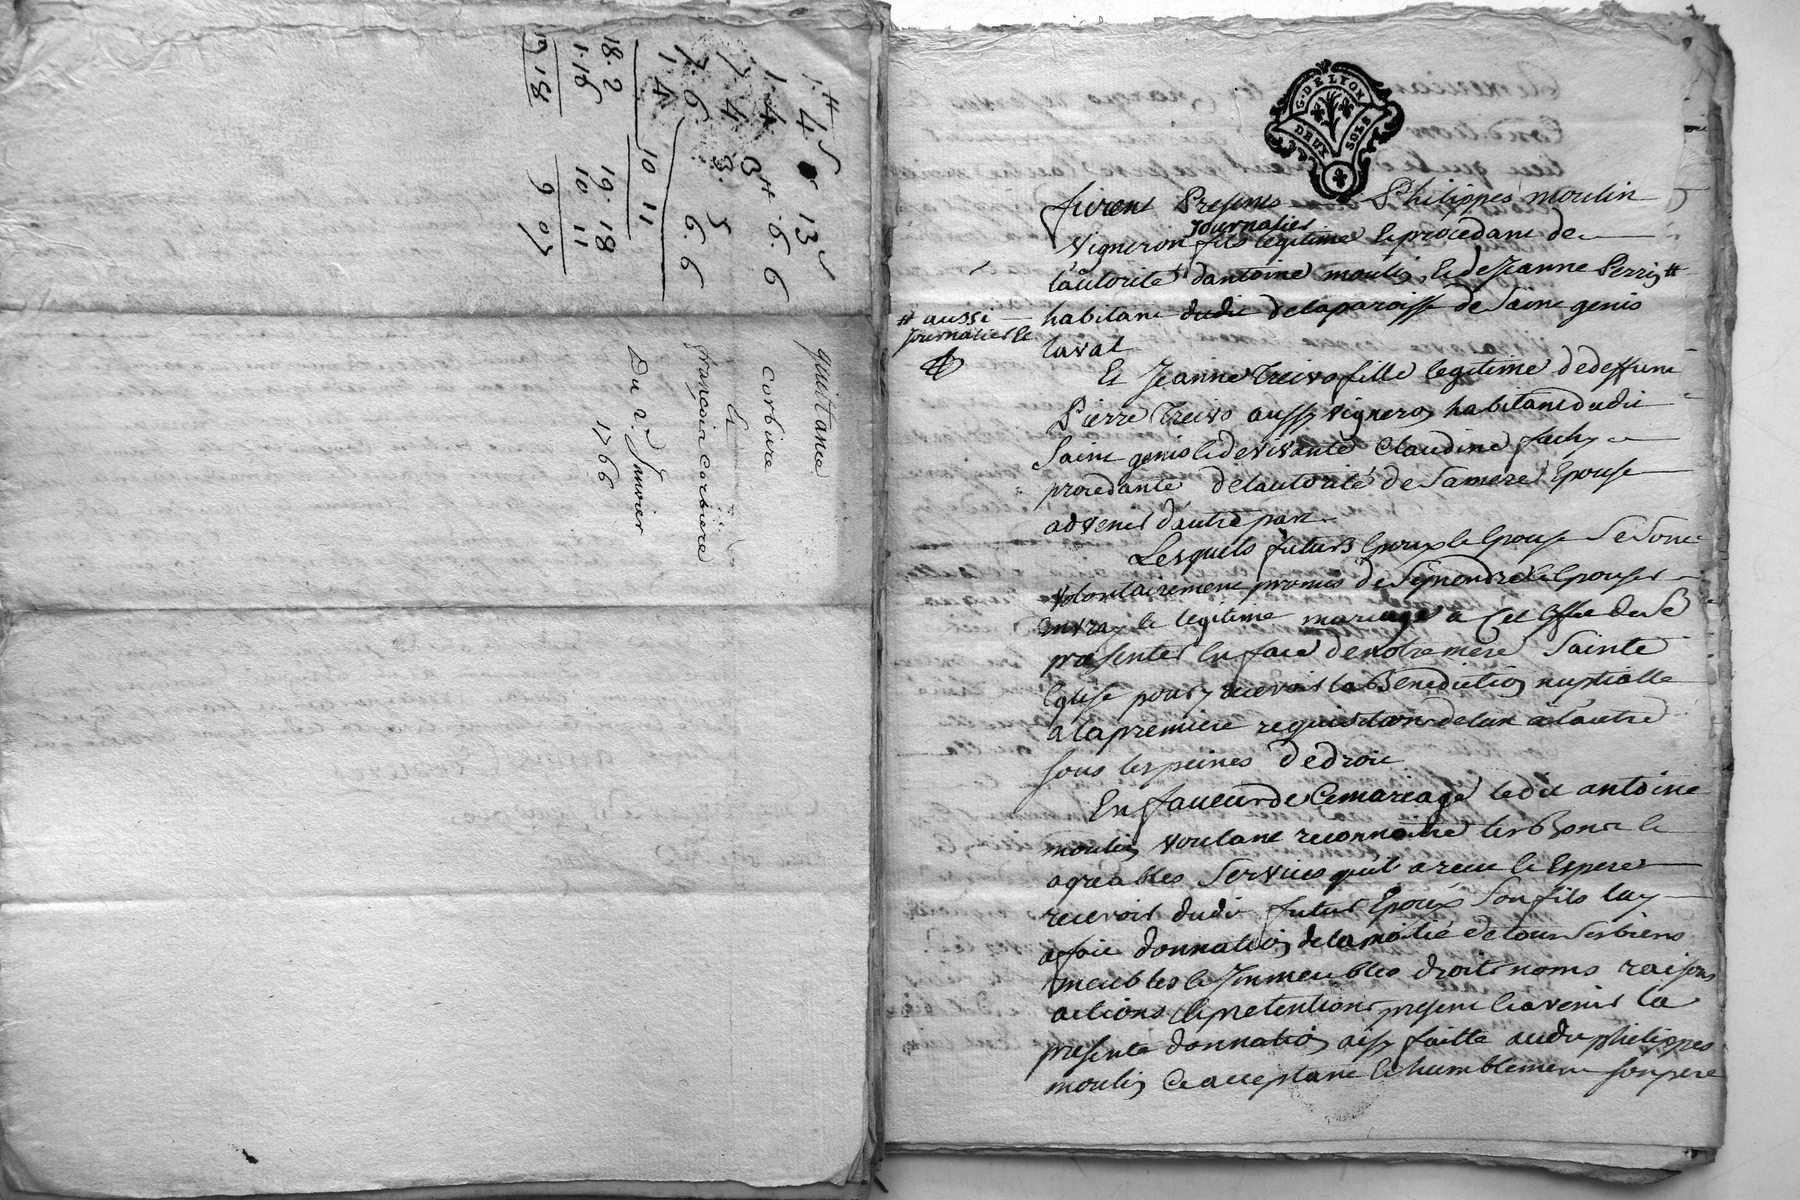 1.# 4 s 13
1. 4 3# 6. 6
7 4 3. 5
7. 6 6. 6
1. 4
10 11
18. 2 19. 18
1. 16 10. 11
19. 18 9 07
quittance
corbiere
et
françois corbiere
Du 2 Janvier
1766
G. DE LYON
DEUX SOLS
furent Presents Philippes moulin
Journalier
vigneron fils legitime et procedant de
l'autorité d'antoine moulin et de Jeanne Perrin #
# aussi
Journalier et
habitant dudit de la paroisse de Saint genis
laval
Et Jeanne Treivo fille legitime de deffunt
Pierre Treivo aussy vigneron habitant dudit
Saint genis et de vivante Claudine fachy
procedante de l'autorité de Sa mere Epouse
advenir d'autre part
Lesquels futurs Epoux et Epouse Se Sont
volontairement promis de Se prendre et Epouser
en vray et legitime mariage a Cet Effet de Se
presenter En face de notre mere Sainte
Eglise pour y recevoir la Benediction nuptialle
a la premiere requisition de l'un a l'autre
sous les peines de droit
En faveur de Ce mariage ledit antoine
moulin voulant reconnoitre les Bons et
agreables Services qu'il a reçu et Espere
recevoir dudit futur Epoux Son fils luy
a fait donnation de la moitié de tous Ses biens
meubles et Immeubles droits noms raisons
actions et pretentions present et avenir la
presente donnation ainsy faitte audit philippes
moulin Ce acceptant et humblement Son pere